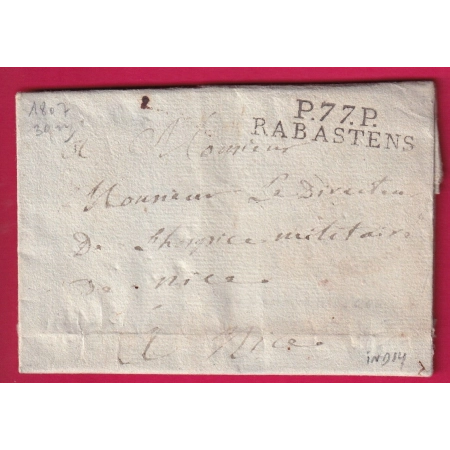 1807
P.77.P.
RABASTENS
A Monsieur
Monsieur Le Directeur
De L'hospice militaire
De nice
A Nice